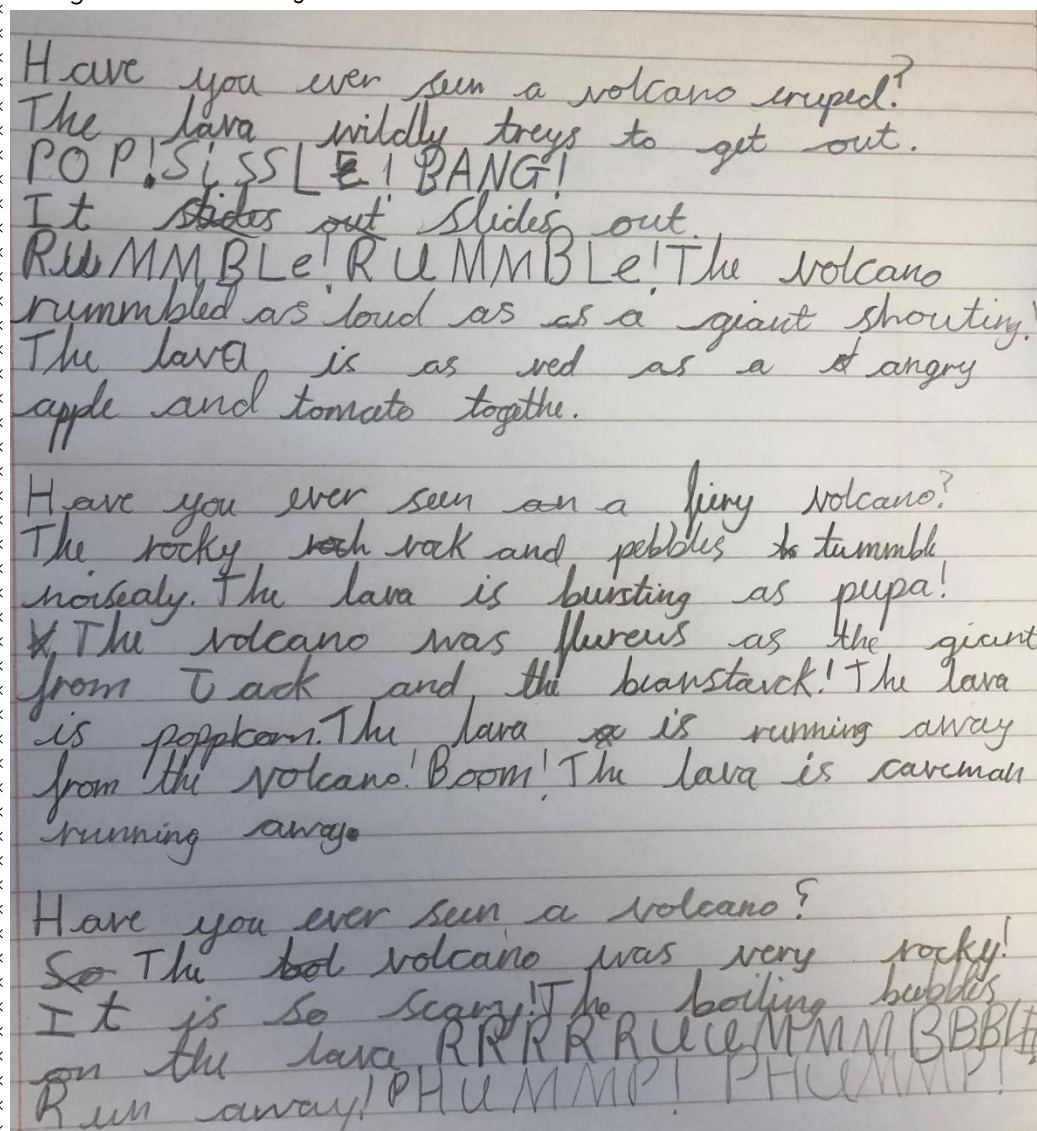 Have you ever seen a volcano eruped?
The lava wildly treys to get out.
POP! SiSSLE! BANG!
It slides out slides out.
RuMMBLe! RUMMBLe! The volcano
rummbled as loud as as a giant shouting!
The lava is as red as a angry
apple and tomato togethe.

Have you ever seen an a fiery volcano?
The rocky roch rock and pebbles to tummble
noisealy. The lava is bursting as pupa!
The volcano was flureus as the giant
from Jack and the beanstarck! The lava
is poppkorn. The lava is running away
from the volcano! Boom! The lava is caveman
running away.

Have you ever seen a volcano?
So The volcano was very rocky!
It is so scary! The boiling bubbles
on the lava RRRRRUUUMMMBBBLE
Run away! PHUMMP! PHUMMP!